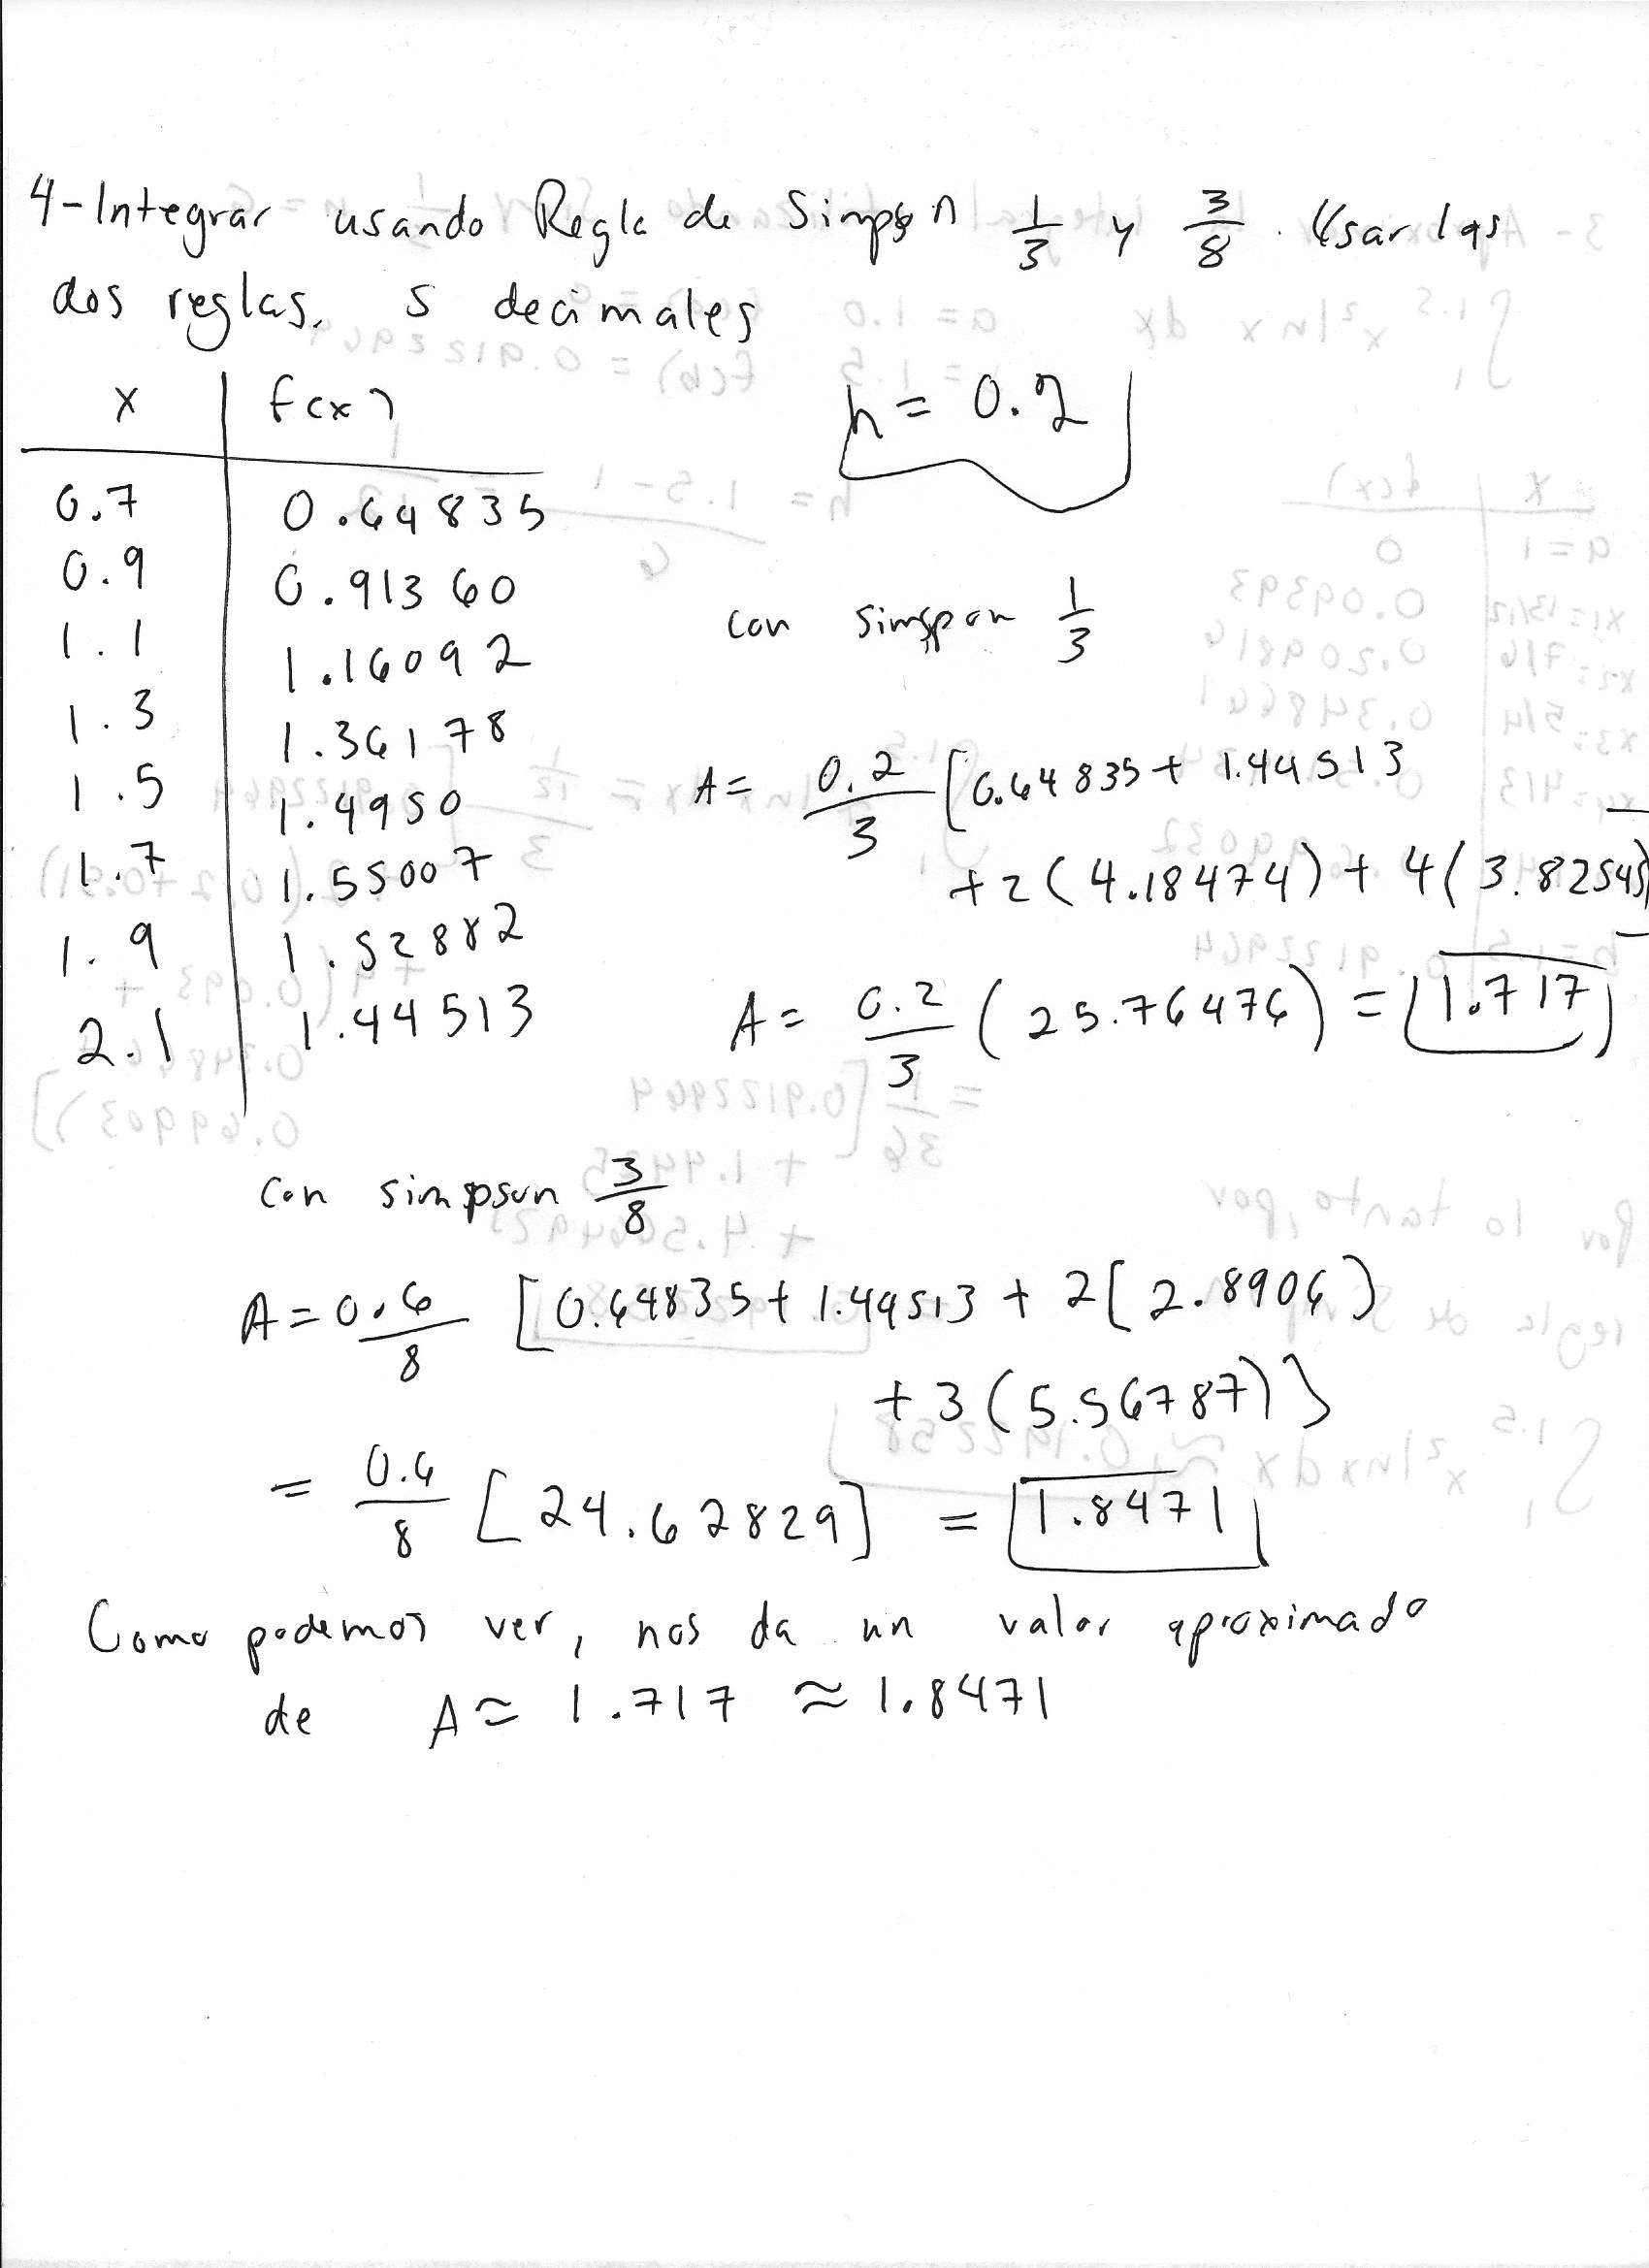 4-Integrar usando Regla de Simpson 1/3 y 3/8. Usar las
dos reglas. 5 decimales
x | f(x)
h = 0.2
0.7 | 0.64835
0.9 | 0.91360
1.1 | 1.16092
1.3 | 1.36178
1.5 | 1.4950
1.7 | 1.55007
1.9 | 1.52882
2.1 | 1.44513
con simspon 1/3
A = 0.2/3 [0.64835 + 1.44513
+ 2(4.18474) + 4(3.82545)]
A = 0.2/3 (25.76476) = 1.717
con simpson 3/8
A = 0.6/8 [0.64835 + 1.44513 + 2[2.8906)
+ 3(5.56787)]
= 0.6/8 [24.62829] = 1.8471
Como podemos ver, nos da un valor aproximado
de A ≈ 1.717 ≈ 1.8471